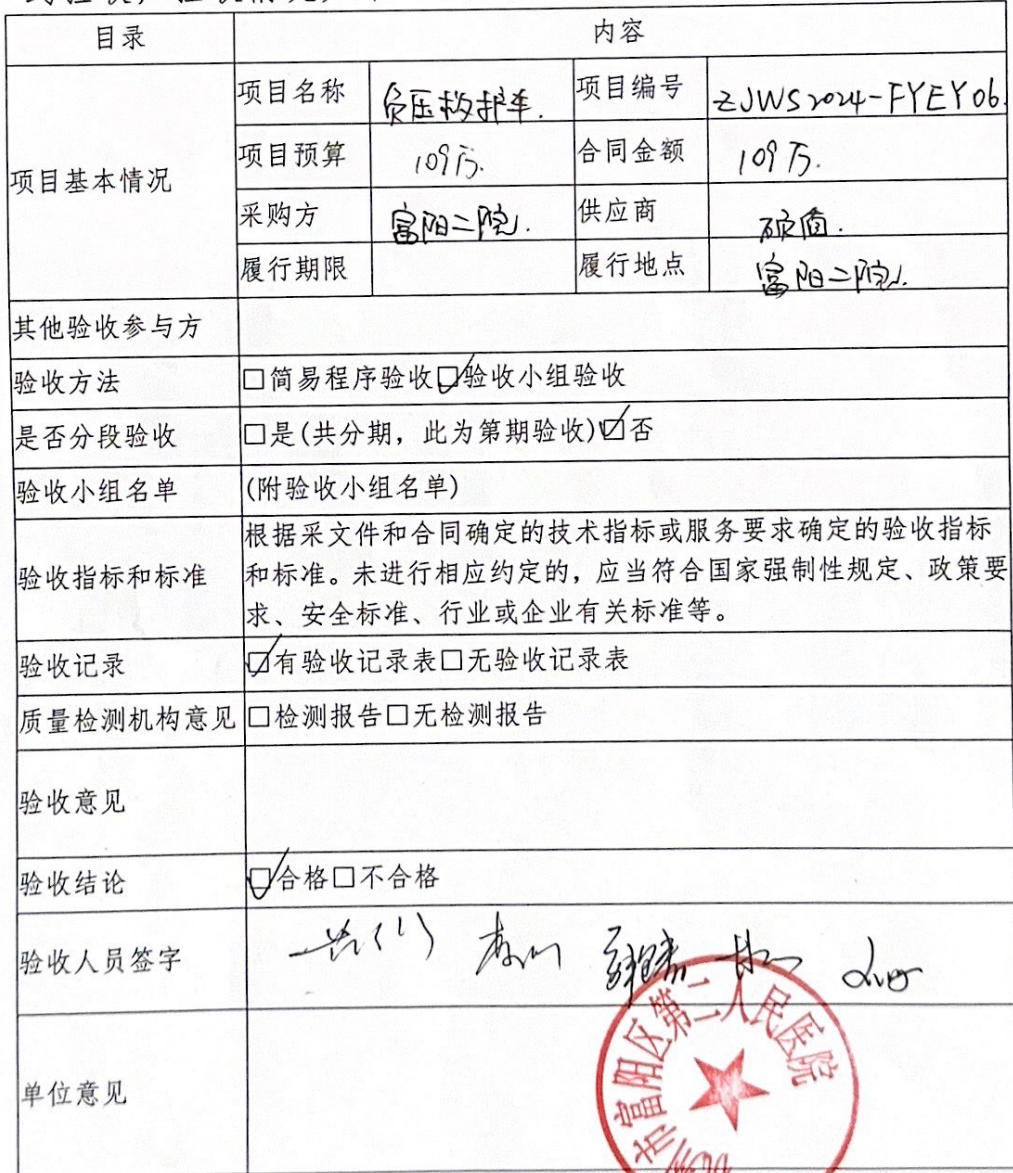 目录 内容
项目基本情况
项目名称 负压救护车. 项目编号 ZJWS2024-FYEY06.
项目预算 109万. 合同金额 109万.
采购方 富阳二院. 供应商 硕盾.
履行期限 履行地点 富阳二院.
其他验收参与方
验收方法 □简易程序验收☑验收小组验收
是否分段验收 □是(共分期，此为第期验收)☑否
验收小组名单 (附验收小组名单)
验收指标和标准
根据采文件和合同确定的技术指标或服务要求确定的验收指标
和标准。未进行相应约定的，应当符合国家强制性规定、政策要
求、安全标准、行业或企业有关标准等。
验收记录 ☑有验收记录表□无验收记录表
质量检测机构意见 □检测报告□无检测报告
验收意见
验收结论 ☑合格□不合格
验收人员签字
单位意见
市富阳区第二人民医院